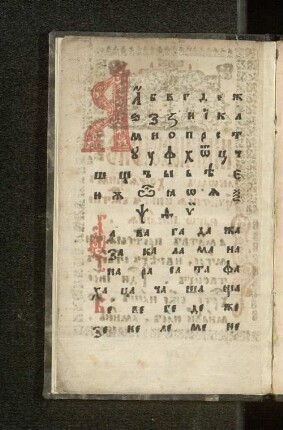 А б в г д е ж
ѕ з н ї к а
м н о п р с т
у ф х ѿ ц ч
ш щ ъ ы ь ѣ є
ю ѫ ѡ ѧ
ѱ ѳ ѵ
ба ва га да жа
за ка ла ма на
па ра са та фа
ха ца ча ша ща
бе ве ге де же
зе ке ле ме не